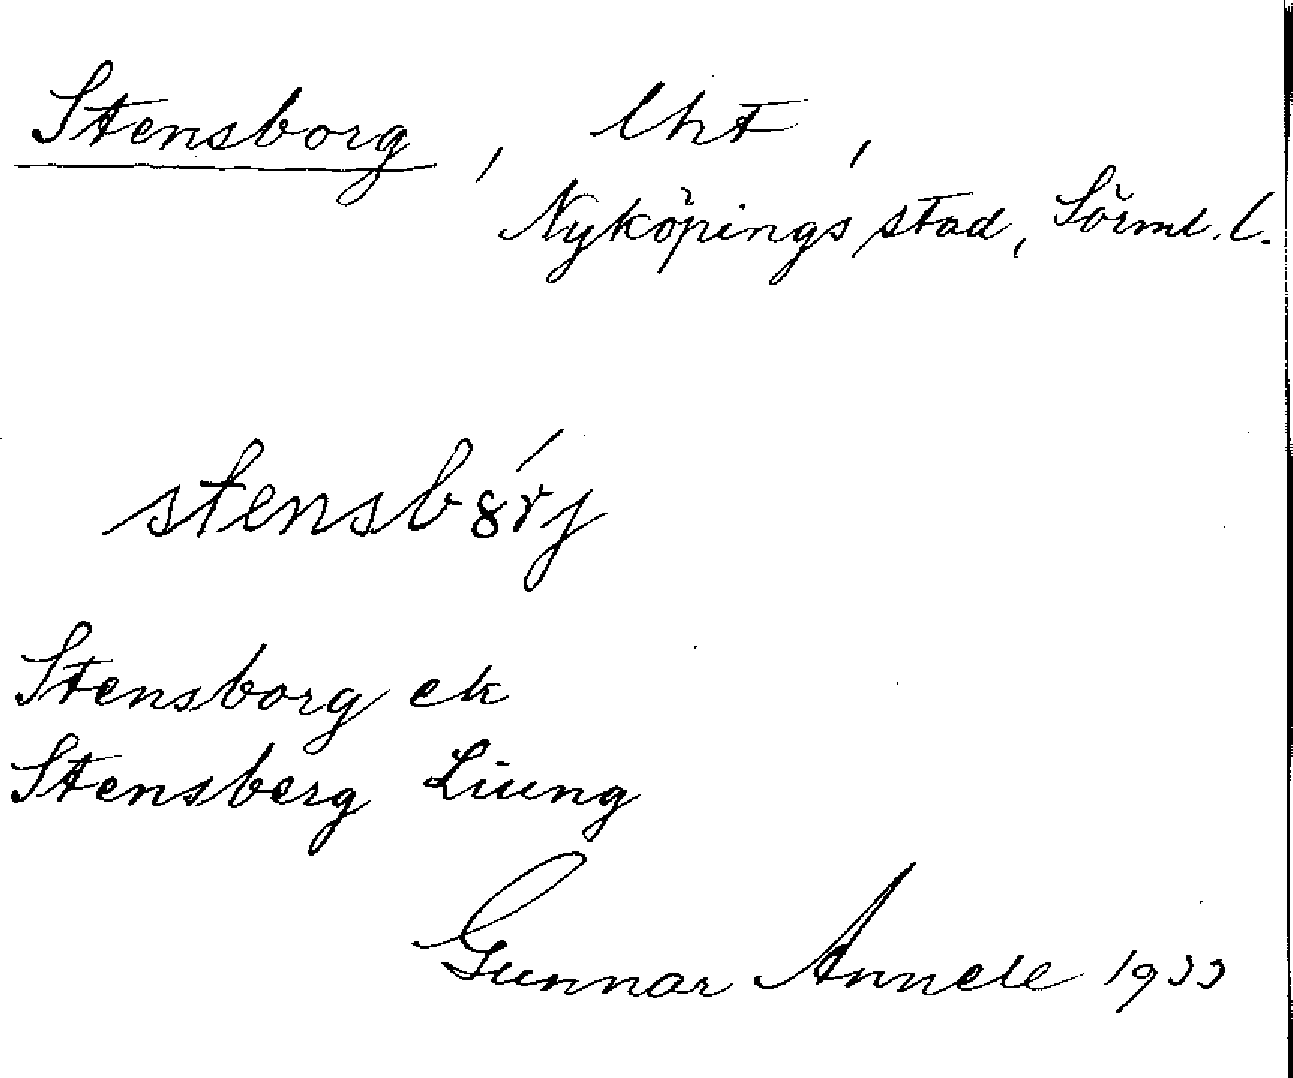 Stensborg, lht,
Nyköpings stad, Sörml. l.
stensbȣ́rj
Stensborg ek
Stensberg Liung
Gunnar Annell 1933